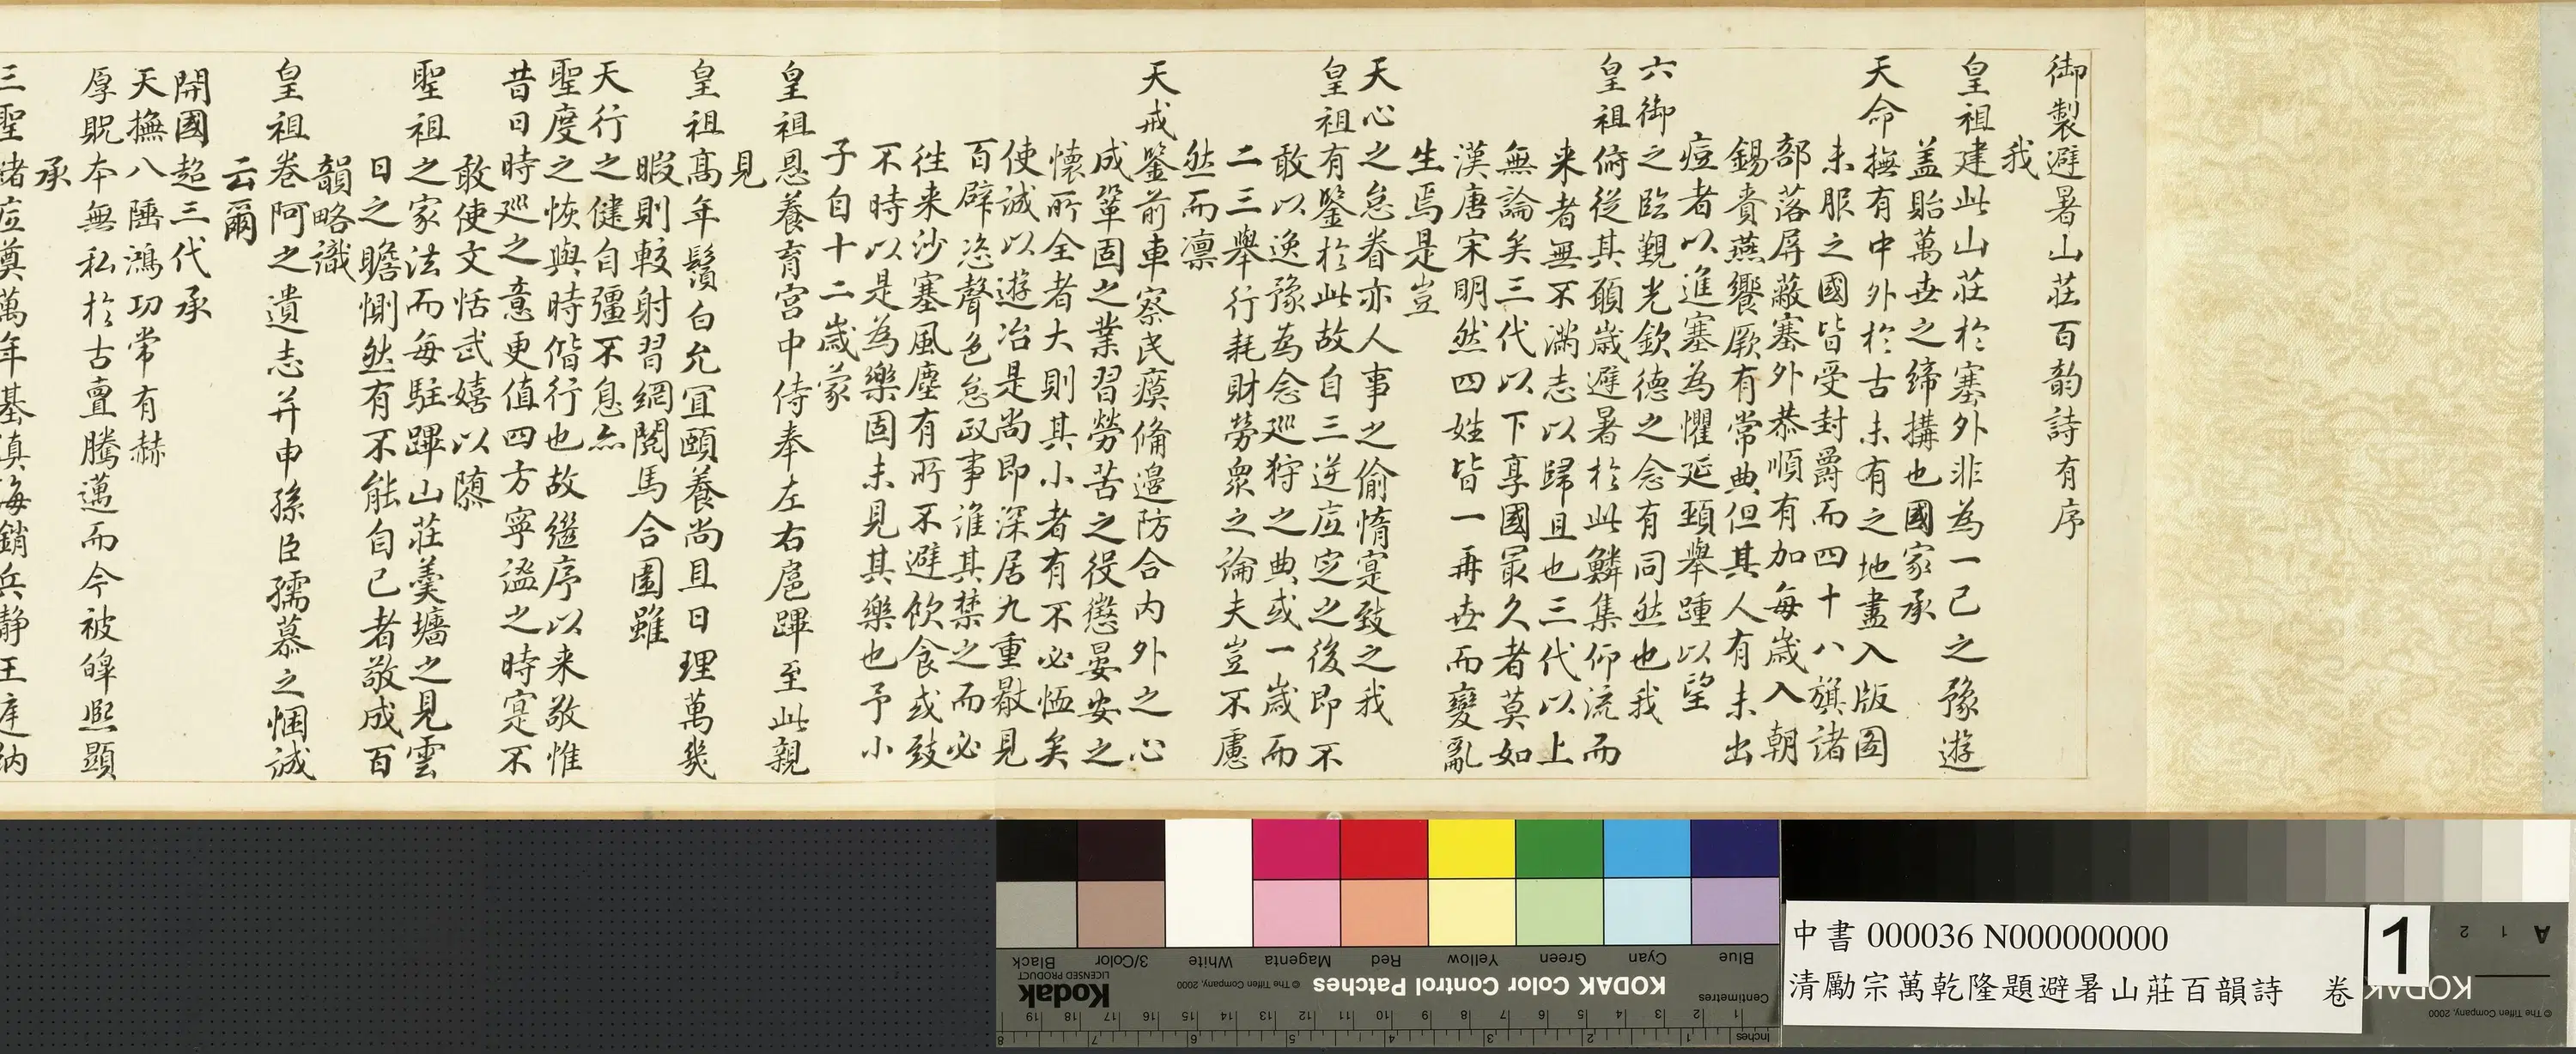 御製避暑山莊百韵詩有序
我
皇祖建此山莊於塞外非為一己之豫遊
盖貽萬世之締構也國家承
天命撫有中外於古未有之地盡入版圖
未服之國皆受封爵而四十八旗諸
部落屏蔽塞外恭順有加每歲入朝
錫賚燕饗厥有常典但其人有未出
痘者以進塞為懼延頸舉踵以望
六御之臨覲光欽德之念有同然也我
皇祖俯從其願歲避暑於此鱗集仰流而
来者無不滿志以歸且也三代以上
無論矣三代以下享國最久者莫如
漢唐宋明然四姓皆一再世而變亂
生焉是豈
天心之怠眷亦人事之偷惰寔致之我
皇祖有鑒於此故自三逆底定之後即不
敢以逸豫為念巡狩之典或一歲而
二三舉行耗財勞衆之論夫豈不慮
然而凛
天戒鑒前車察民瘼備邊防合内外之心
成鞏固之業習勞苦之役懲晏安之
懷所全者大則其小者有不必恤矣
使誠以遊冶是尚即深居九重尟見
百辟恣聲色怠政事誰其禁之而必
徃来沙塞風塵有所不避飲食或致
不時以是為樂固未見其樂也予小
子自十二歲蒙
皇祖恩養育宮中侍奉左右扈蹕至此親
見
皇祖髙年鬚白允宜頤養尚且日理萬幾
暇則較射習網閲馬合圍雖
天行之健自彊不息亦
聖度之恢與時偕行也故繼序以来敬惟
昔日時巡之意更值四方寧謐之時寔不
敢使文恬武嬉以隳
聖祖之家法而每駐蹕山莊羹墻之見雲
日之瞻惻然有不能自已者敬成百
韻略識
皇祖巻阿之遺志并申孫臣孺慕之悃誠
云爾
開國超三代承
天撫八陲鴻功常有赫
厚貺本無私於古亶騰邁而今被皞熙顯
承
三聖緒底奠萬年基滇海銷兵静王庭納
Black 3/Color White Magenta Red Yellow Green Cyan Blue
Kodak
LICENSED PRODUCT
© The Tiffen Company, 2000
KODAK Color Control Patches
Centimetres
1 2 3 4 5 6 7 8 9 10 11 12 13 14 15 16 17 18 19
Inches
1 2 3 4 5 6 7 8
中書 000036 N000000000
清勵宗萬乾隆題避暑山莊百韻詩 卷
1
A 1 2
KODAK
© The Tiffen Company, 2000